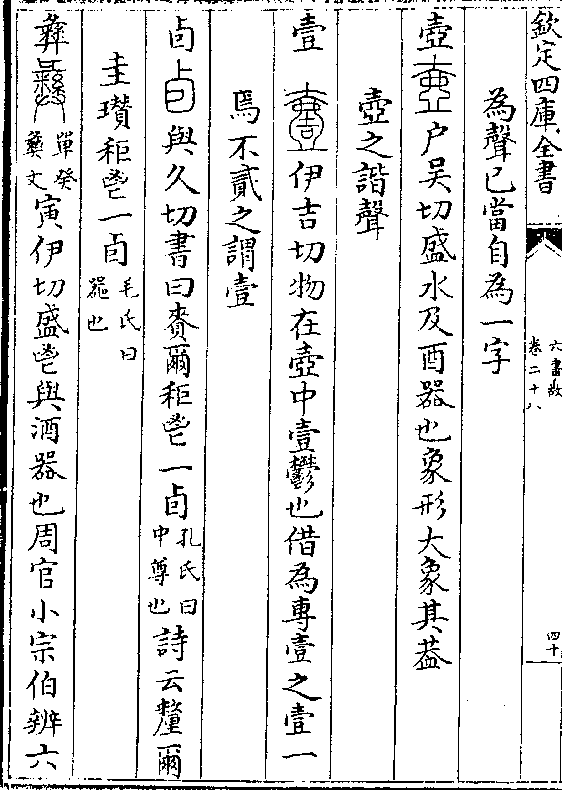 欽定四庫全書
六書故
卷二十八
四十
為聲已當自為一字
壺戶吴切盛水及酉器也象形大象其葢
壺之諧聲
壹伊吉切物在壺中壹鬱也借為專壹之壹一
焉不貳之謂壹
卣與久切書曰賚爾秬鬯一卣孔氏曰中尊也詩云釐爾
圭瓚秬鬯一卣毛氏曰器也
彝單癸彝文寅伊切盛鬯與酒器也周官小宗伯辨六